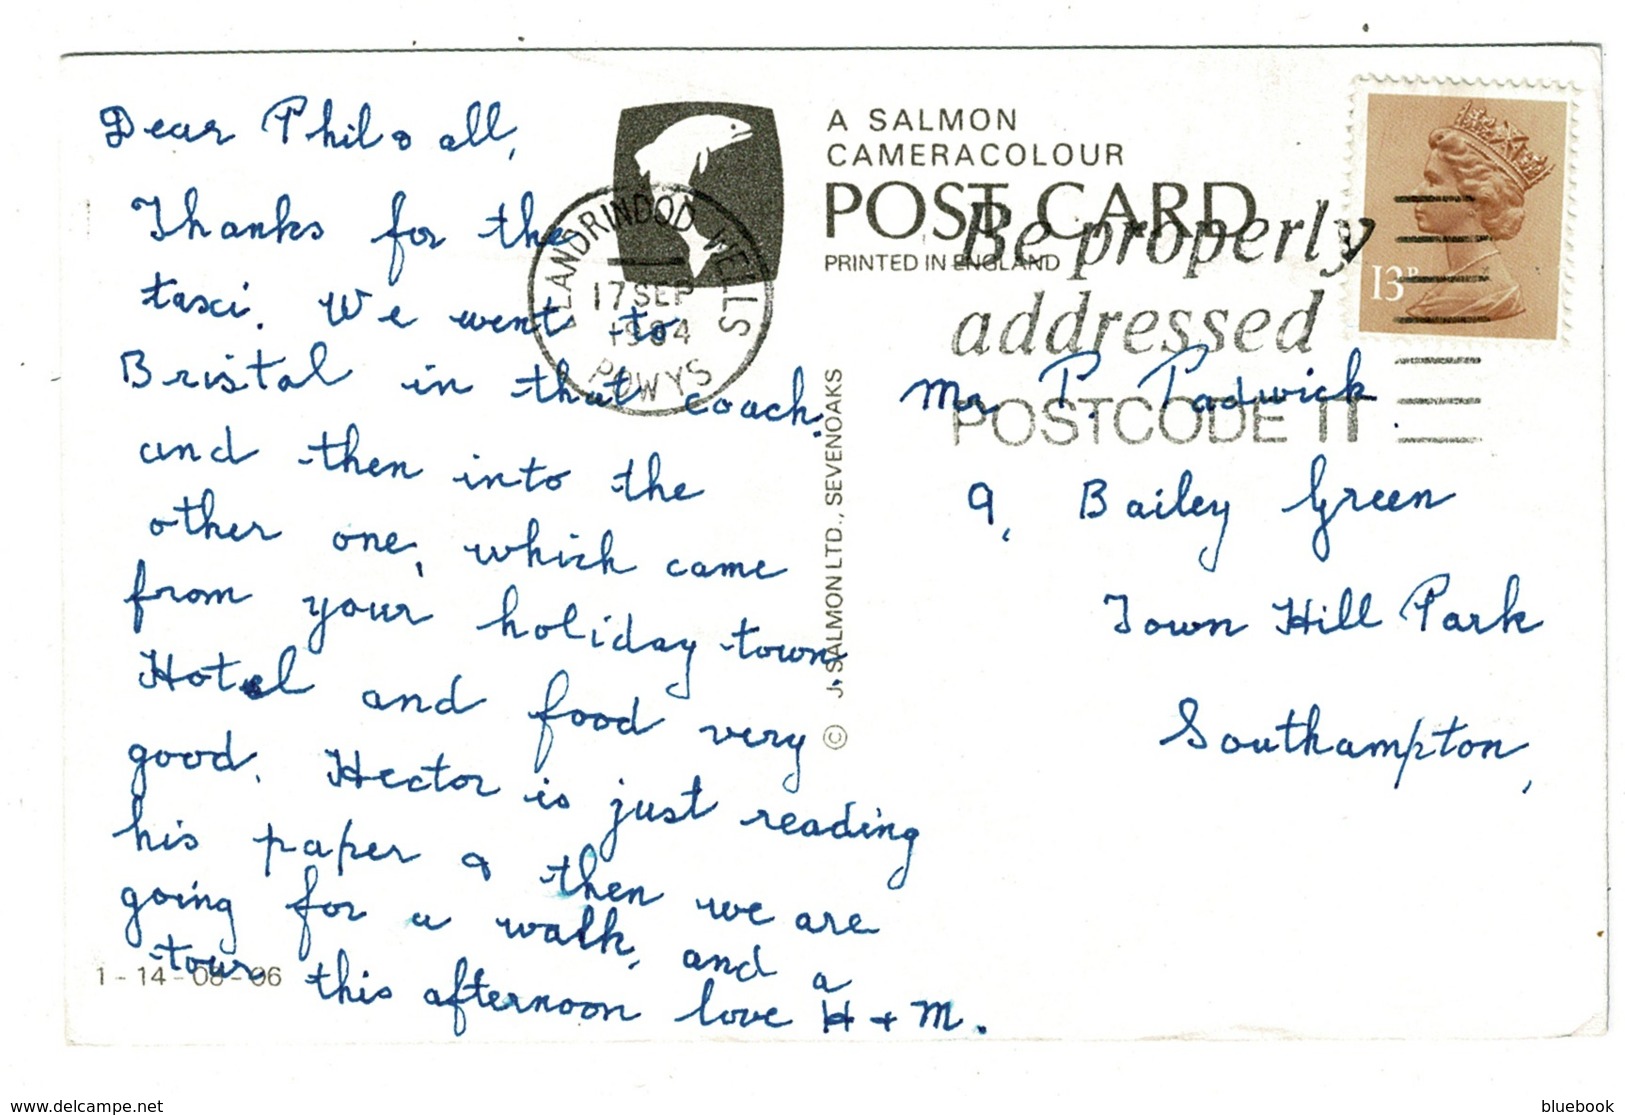 Dear Phil & all,
Thanks for the
taxi. We went to
Bristol in that coach.
and then into the
other one, which came
from your holiday town.
Hotel and food very
good. Hector is just reading
his paper & then we are
going for a walk, and a
tour this afternoon love H + M.
1-14-08-06
LLANDRINDOD WELLS
17 SEP
1984
POWYS
A SALMON
CAMERACOLOUR
POST CARD
PRINTED IN ENGLAND
© J. SALMON LTD., SEVENOAKS
Be properly
addressed
POSTCODE IT
13P
Mr P. Padwick
9, Bailey Green
Town Hill Park
Southampton,
www.delcampe.net
bluebook